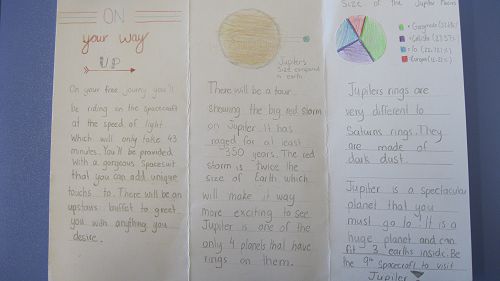 ON
your way
UP
On your free journy you'll
be riding on the spacecraft
at the speed of light
which will only take 43
minutes. You'll be provided
with a gorgeous spacesuit
that you can add unique
touchs to. There will be an
upstairs buffet to greet
you with anything you
desire.
Jupiters
Size compared
n earth.
There will be a tour
showing the big red storm
on Jupiter. It has
raged for at least
~350 years. The red
storm is twice the
size of Earth which
will make it way
more exciting to see
Jupiter is one of the
only 4 planets that have
rings on them.
Size of the Jupiter Moons
= Ganymede
= Callisto
= Io
= Europa
Jupiters rings are
very different to
Saturns rings. They
are made of
dark dust.
Jupiter is a spectacular
planet that you
must go to! It is a
huge planet and can
fit 3 earths inside. Be
the 9th Spacecraft to visit
Jupiter